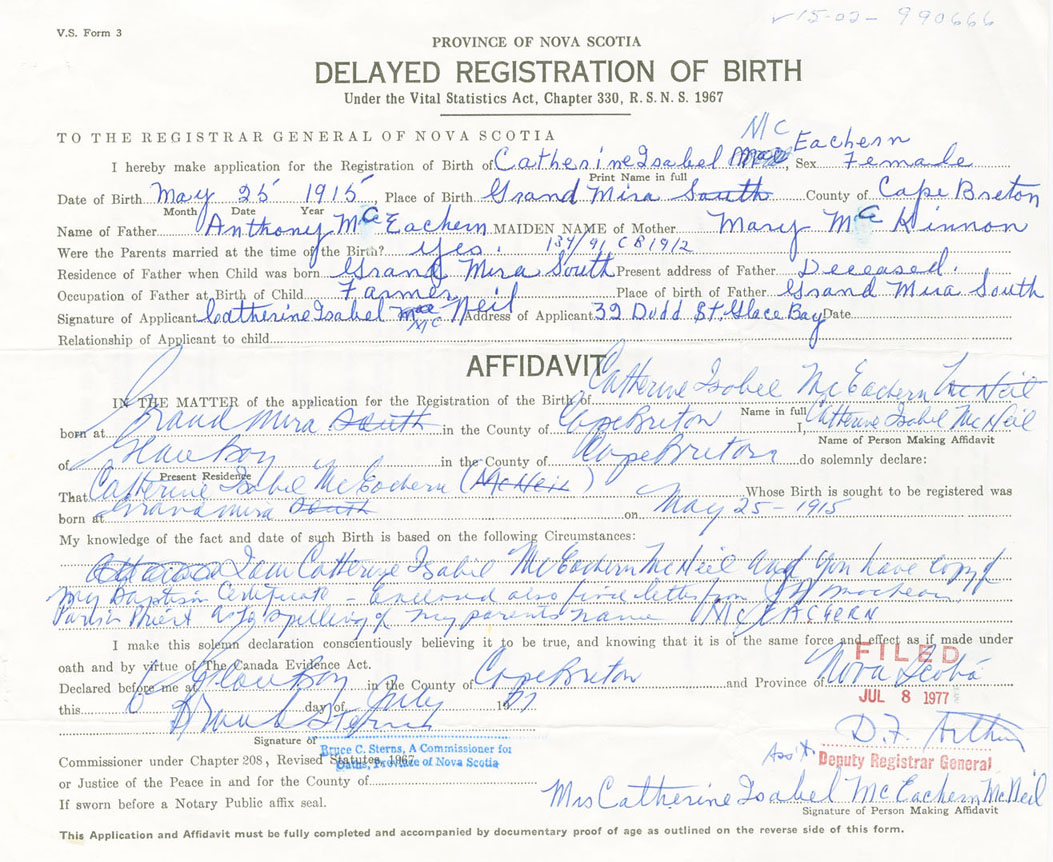 V.S. Form 3
15-02- 990666
PROVINCE OF NOVA SCOTIA
DELAYED REGISTRATION OF BIRTH
Under the Vital Statistics Act, Chapter 330, R. S. N. S. 1967
TO THE REGISTRAR GENERAL OF NOVA SCOTIA
Mc Eachern
I hereby make application for the Registration of Birth of Catherine Isabel Mac, Sex Female
Print Name in full
Date of Birth May 25 1915, Place of Birth Grand Mira South County of Cape Breton
Month Date Year
Name of Father Anthony McEachern MAIDEN NAME of Mother Mary McKinnon
Were the Parents married at the time of the Birth? Yes. 134/91 CB 1912
Residence of Father when Child was born Grand Mira South Present address of Father Deceased.
Occupation of Father at Birth of Child Farmer Place of birth of Father Grand Mira South
Signature of Applicant Catherine Isabel Mac Neil Address of Applicant 32 Dodd St. Glace Bay Date
Mc
Relationship of Applicant to child
AFFIDAVIT
IN THE MATTER of the application for the Registration of the Birth of Catherine Isabel McEachern McNeil
Name in full
born at Grand Mira South in the County of Cape Breton I, Catherine Isabel McNeil
Name of Person Making Affidavit
of Glace Bay in the County of Cape Breton do solemnly declare:
Present Residence
That Catherine Isabel McEachern (McNeil) Whose Birth is sought to be registered was
born at Grand Mira South on May 25 - 1915
My knowledge of the fact and date of such Birth is based on the following Circumstances:
I am Catherine Isabel McEachern McNeil and you have copy of
my Baptism Certificate - Enclosed also find letter from
Parish Priest as to spelling of my parents name McEACHERN
I make this solemn declaration conscientiously believing it to be true, and knowing that it is of the same force and effect as if made under
oath and by virtue of The Canada Evidence Act.
FILED
Declared before me at Glace Bay in the County of Cape Breton and Province of Nova Scotia
JUL 8 1977
this 6 day of July 1977
Signature of
Bruce C. Sterns, A Commissioner for
Oaths, Province of Nova Scotia
D.F. Arthur
Commissioner under Chapter 208, Revised Statutes, 1967
Ass't Deputy Registrar General
or Justice of the Peace in and for the County of
Mrs Catherine Isabel McEachern McNeil
Signature of Person Making Affidavit
If sworn before a Notary Public affix seal.
This Application and Affidavit must be fully completed and accompanied by documentary proof of age as outlined on the reverse side of this form.